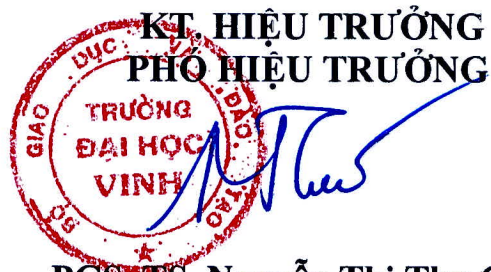 KT. HIỆU TRƯỞNG
PHÓ HIỆU TRƯỞNG
BỘ GIÁO DỤC VÀ ĐÀO TẠO
TRƯỜNG
ĐẠI HỌC
VINH
PGS. TS. Nguyễn Thị